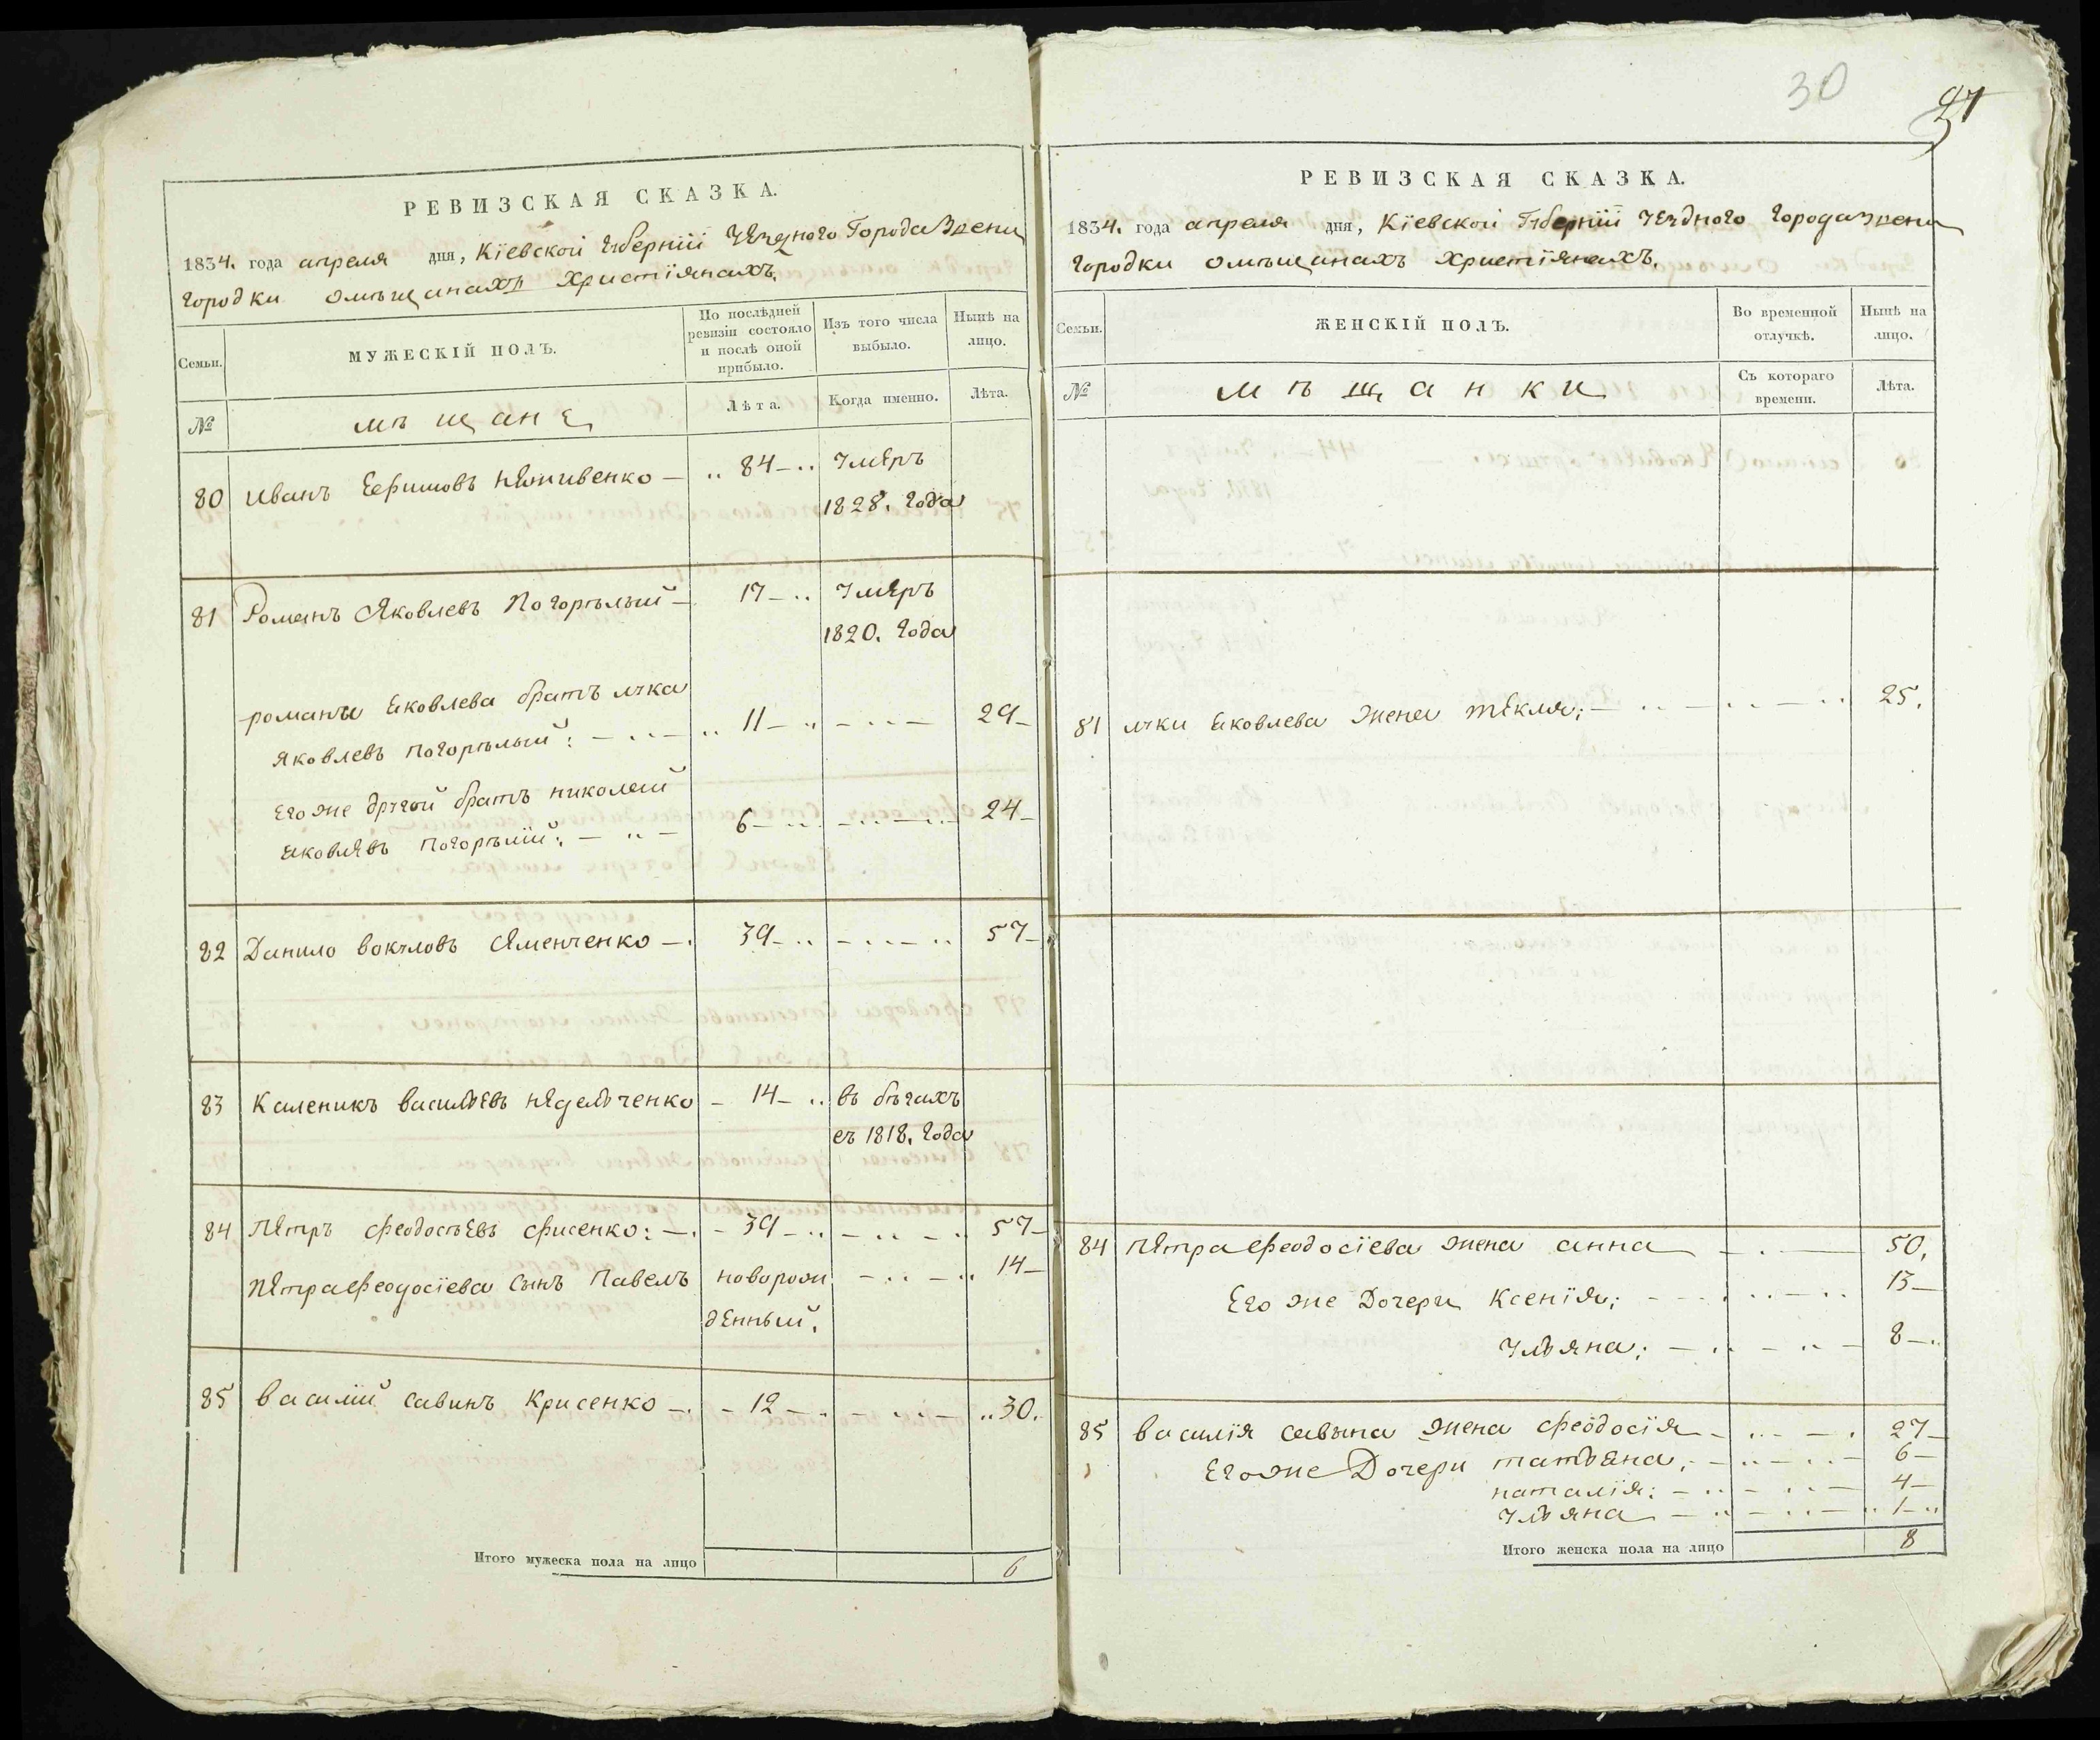 30
27
РЕВИЗСКАЯ СКАЗКА.
1834. года апреля дня, Кіевской Губерніи Уезднаго Города Звени
городки омѣщанахъ Христіянахъ.
Семьи.
МУЖЕСКІЙ ПОЛЪ.
По послѣдней ревизіи состояло и послѣ оной прибыло.
Изъ того числа выбыло.
Нынѣ на лицо.
№
мѣщане
Лѣта.
Когда именно.
Лѣта.
80 Иванъ Ефимовъ нѣживенко — 84 — умеръ
1828. года
81 Романъ Яковлевъ Погорѣлый — 17 — умеръ
1820. года
романа яковлева братъ лука
яковлевъ погорѣлый: — 11 — 29 —
его же другой братъ николай
яковлевъ погорѣлій: — 6 — 24 —
82 Данило вокуловъ Яменченко — 39 — 57 —
83 Каленикъ васильевъ недельченко — 14 — въ бѣгахъ
съ 1818. года
84 петръ феодосѣевъ фисенко: — 39 — 57 —
петра феодосіева сынъ Павелъ новорож — 14 —
денный.
85 василій савинъ Крисенко — 12 — 30.
Итого мужеска пола на лицо 6
РЕВИЗСКАЯ СКАЗКА.
1834. года апреля дня, Кіевской Губерніи Уезднаго города звени
городки омѣщанахъ христіянахъ.
Семьи.
ЖЕНСКІЙ ПОЛЪ.
Во временной отлучкѣ.
Нынѣ на лицо.
№
мѣщанки
Съ котораго времени.
Лѣта.
81 луки яковлева жена текля; — 25.
84 петра феодосіева жена анна — 50.
Его же Дочери Ксенія; — 13 —
Ульяна; — 8 —
85 василія савына жена феодосія — 27 —
Его же Дочери татьяна, — 6 —
наталія: — 4 —
Ульяна — 1 —
Итого женска пола на лицо 8